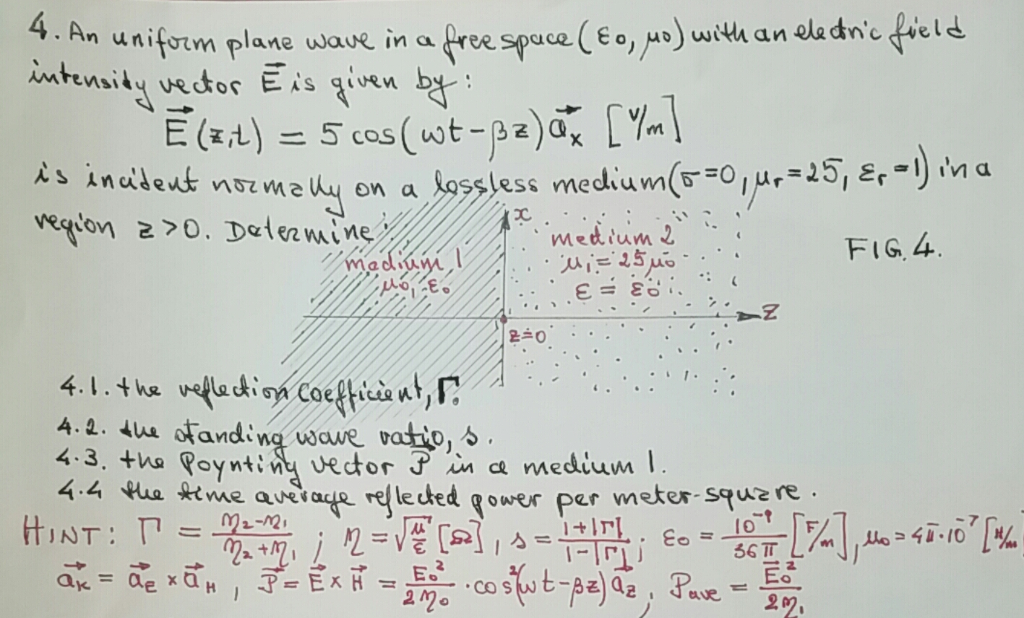 4. An uniform plane wave in a free space (ε0, μ0) with an electric field
intensity vector E⃗ is given by:
E⃗(z,t) = 5 cos(ωt-βz) a⃗x [V/m]
is incident normally on a lossless medium (σ=0, μr=25, εr=1) in a
region z>0. Determine:
x
medium 1
μ0, ε0
medium 2
μ1 = 25μ0
ε = ε0
FIG. 4.
z
z=0
4.1. the reflection coefficient, Γ.
4.2. the standing wave ratio, s.
4.3. the Poynting vector P⃗ in a medium 1.
4.4 the time average reflected power per meter-square.
HINT: Γ = (η2-η1)/(η2+η1) ; η = √(μ/ε) [Ω], s = (1+|Γ|)/(1-|Γ|); ε0 = 10^-9/36π [F/m], μ0 = 4π·10^-7 [H/m
a⃗k = a⃗E × a⃗H, P⃗ = E⃗ × H⃗ = E0²/2η0 · cos²(ωt-βz) a⃗z, Pave = E0²/2η1